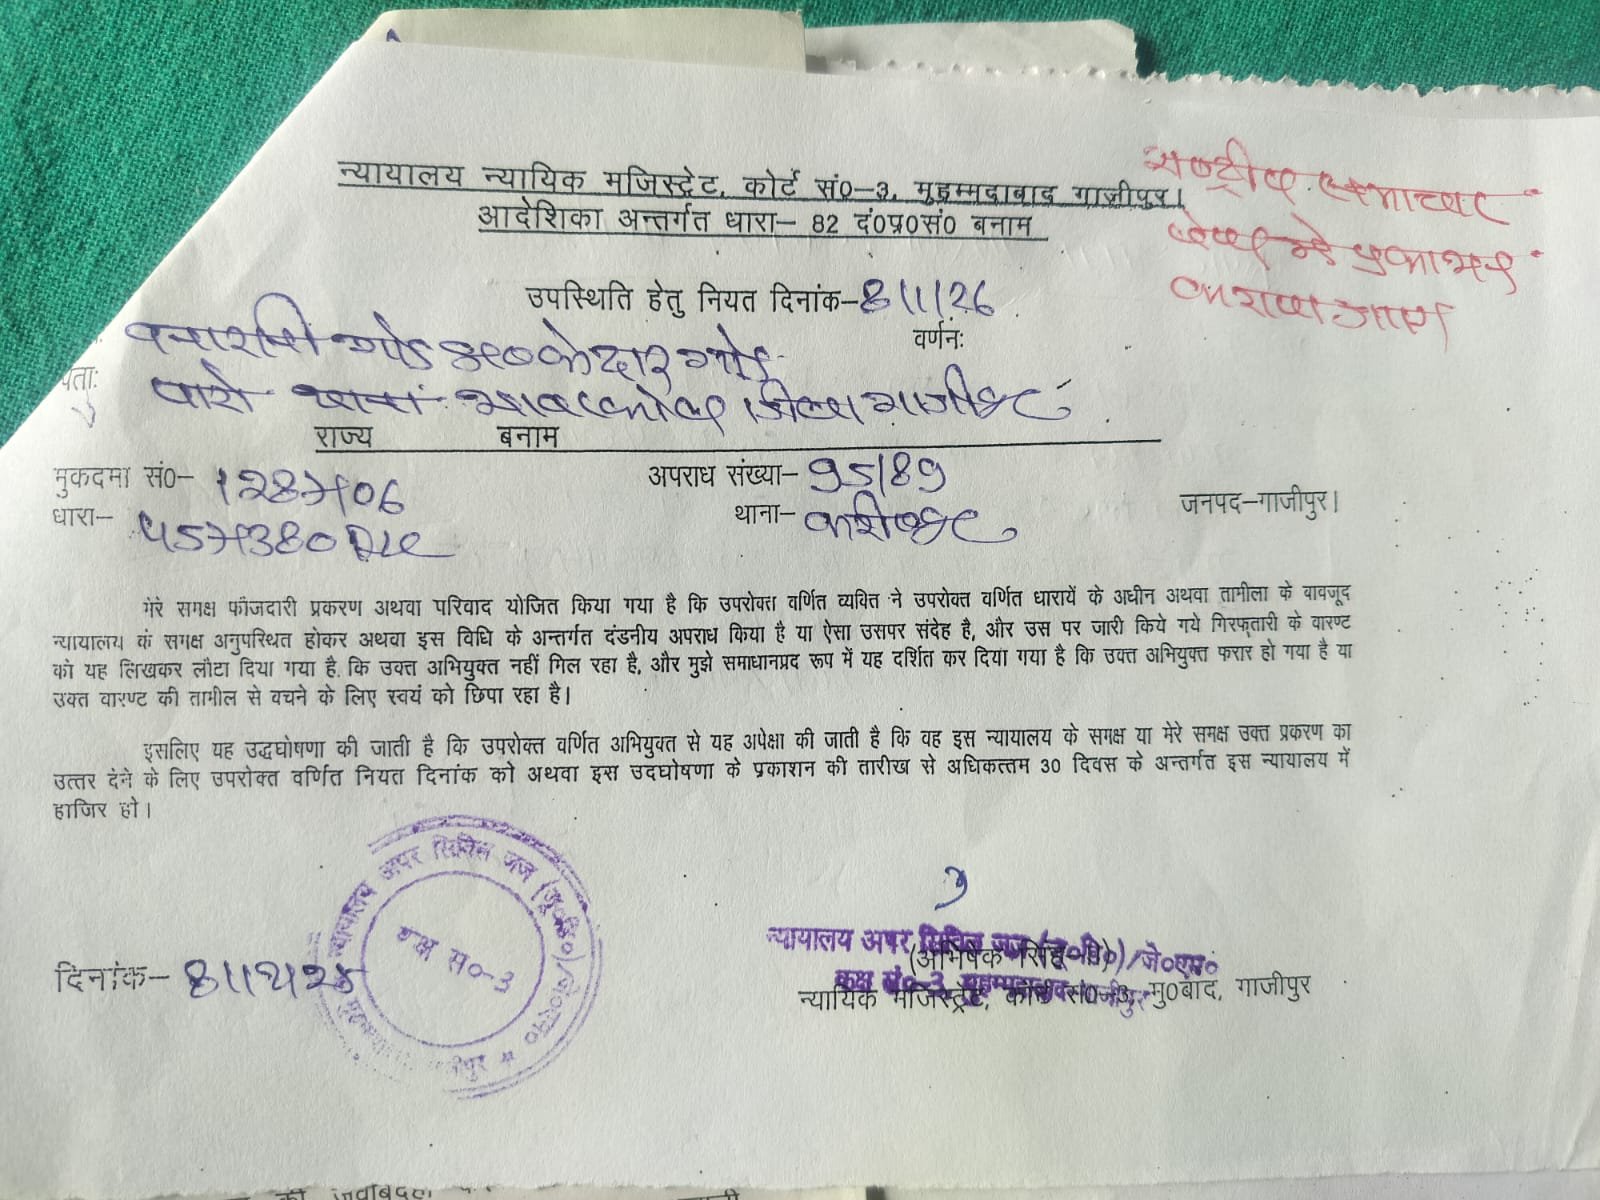 न्यायालय न्यायिक मजिस्ट्रेट, कोर्ट सं0-3, मुहम्मदाबाद गाजीपुर।
आदेशिका अन्तर्गत धारा- 82 दं0प्र0सं0 बनाम
राष्ट्रीय समाचार
पेपर मे प्रकाशन
कराया जाए
उपस्थिति हेतु नियत दिनांक-8/1/26
वर्णनः
गोड़ S/o केदार गोड़
पताः
पारो थाना जिला गाजीपुर
राज्य बनाम
मुकदमा सं0- 1287/06 अपराध संख्या- 95/89
धारा- 457/380 थाना- करीमु0 जनपद-गाजीपुर।
मेरे समक्ष फौजदारी प्रकरण अथवा परिवाद योजित किया गया है कि उपरोक्त वर्णित व्यक्ति ने उपरोक्त वर्णित धारायें के अधीन अथवा तामीला के बावजूद
न्यायालय के समक्ष अनुपस्थित होकर अथवा इस विधि के अन्तर्गत दंडनीय अपराध किया है या ऐसा उसपर संदेह है, और उस पर जारी किये गये गिरफ्तारी के वारण्ट
को यह लिखकर लौटा दिया गया है. कि उक्त अभियुक्त नहीं मिल रहा है, और मुझे समाधानप्रद रूप में यह दर्शित कर दिया गया है कि उक्त अभियुक्त फरार हो गया है या
उक्त वारण्ट की तामील से बचने के लिए स्वयं को छिपा रहा है।
इसलिए यह उद्धघोषणा की जाती है कि उपरोक्त वर्णित अभियुक्त से यह अपेक्षा की जाती है कि वह इस न्यायालय के समक्ष या मेरे समक्ष उक्त प्रकरण का
उत्तर देने के लिए उपरोक्त वर्णित नियत दिनांक को अथवा इस उदघोषणा के प्रकाशन की तारीख से अधिकत्तम 30 दिवस के अन्तर्गत इस न्यायालय में
हाजिर हो।
न्यायालय अपर सिविल जज (जू०डि०)/जे०एम०
कक्ष सं०-3
दिनांक- 8/12/25
न्यायालय अपर सिविल जज (जू०डि०)/जे०एम०
(अभिषेक सिंह)
कक्ष सं०-3, मुहम्मदाबाद गाजीपुर
न्यायिक मजिस्ट्रेट, कोर्ट सं0-3, मु0बाद, गाजीपुर